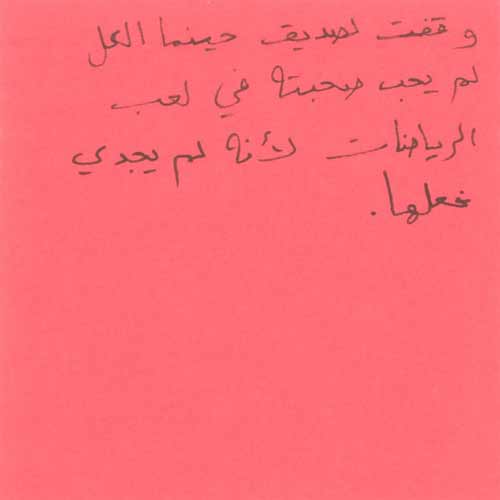 وقفت لصديق حينما الكل
لم يحب صحبته في لعب
الرياضات لأنه لم يجدي
فعلها.